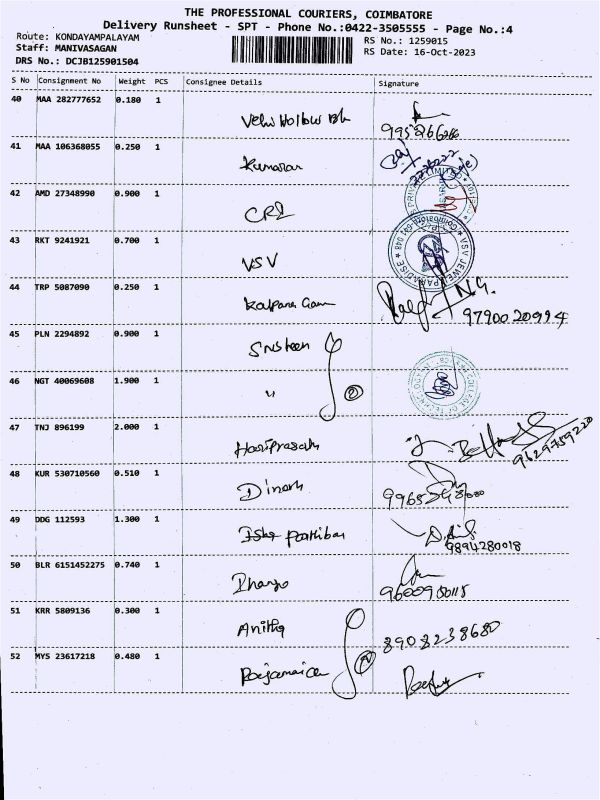 THE PROFESSIONAL COURIERS, COIMBATORE
Delivery Runsheet - SPT - Phone No.:0422-3505555 - Page No.:4
Route: KONDAYAMPALAYAM
Staff: MANIVASAGAN
DRS No.: DCJB125901504
RS No.: 1259015
RS Date: 16-Oct-2023
S No Consignment No Weight PCS Consignee Details Signature
40 MAA 282777652 0.180 1
41 MAA 106368055 0.250 1 Kumaran
42 AMD 27348990 0.900 1 CRI
43 RKT 9241921 0.700 1 VSV
44 TRP 5087090 0.250 1 Kalpana 9790020994
45 PLN 2294892 0.900 1
46 NGT 40069608 1.900 1 " 2
47 TNJ 896199 2.000 1 Hariprasath 9629759220
48 KUR 530710560 0.510 1 Dinesh
49 DDG 112593 1.300 1 Parthiban 9894280018
50 BLR 6151452275 0.740 1
51 KRR 5809136 0.300 1 Anitha 8908238680
52 MYS 23617218 0.480 1